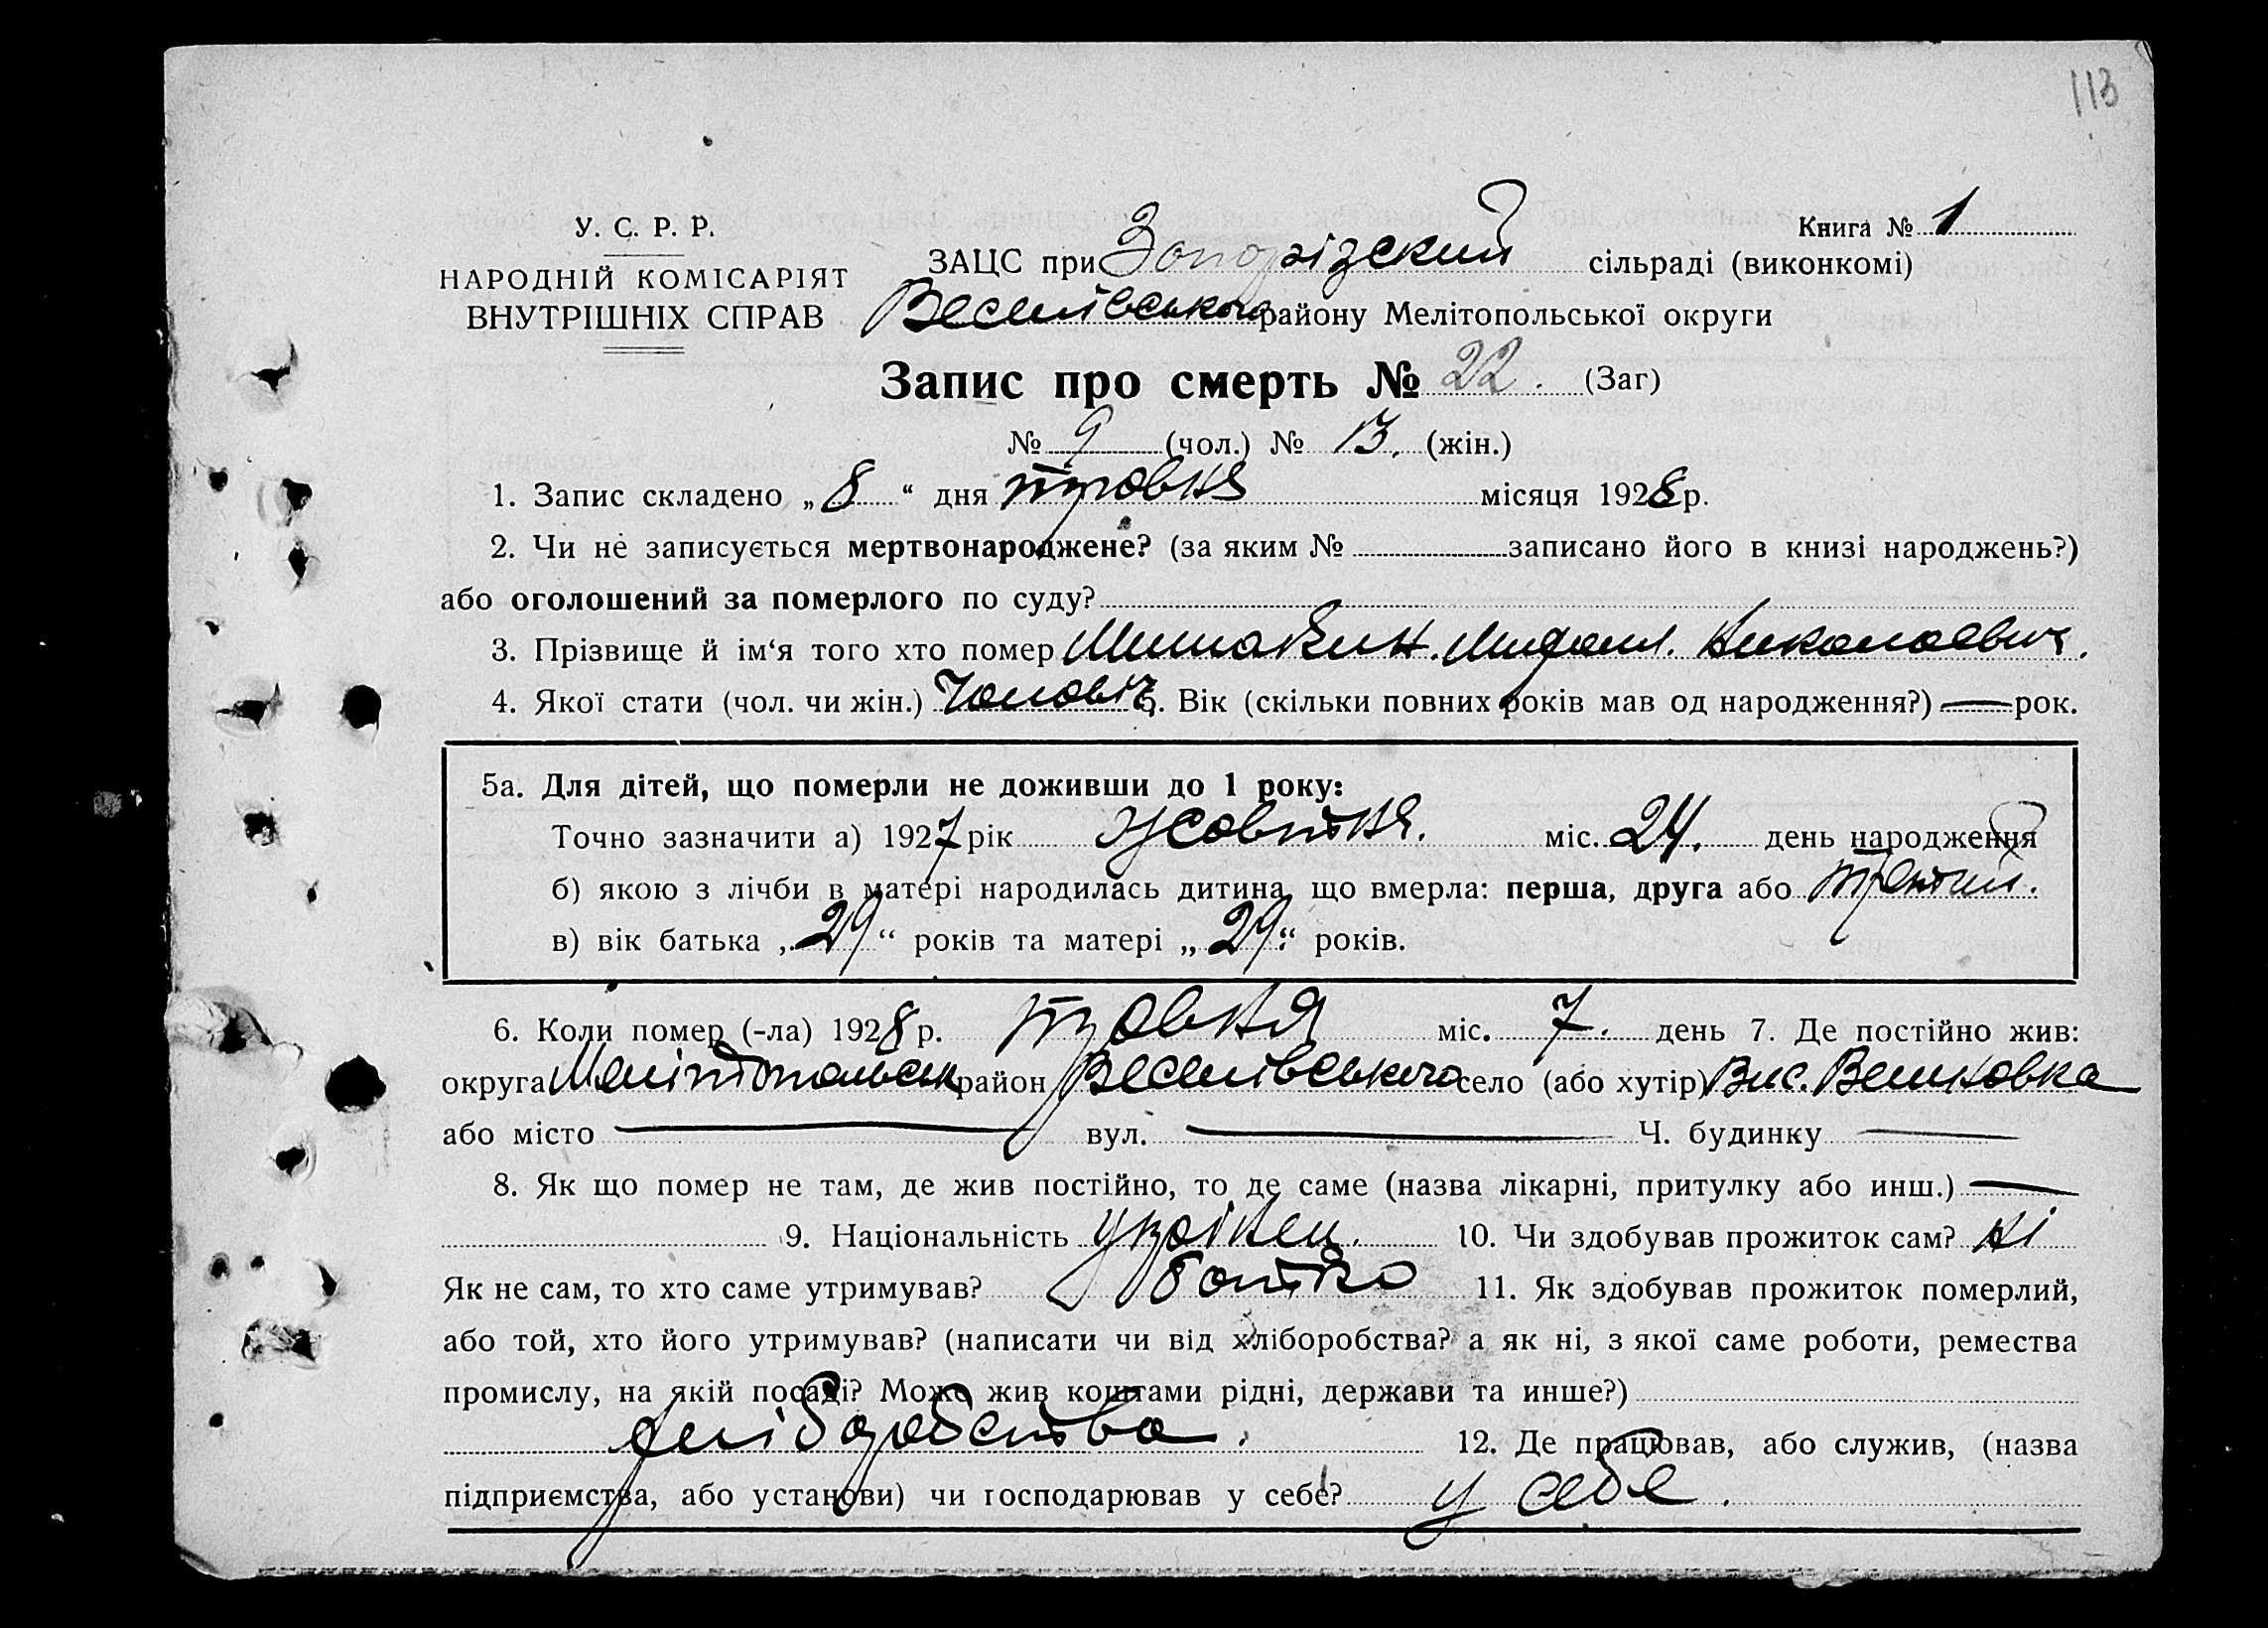 113
У. С. Р. Р.
НАРОДНІЙ КОМІСАРІЯТ
ВНУТРІШНІХ СПРАВ
Книга № 1
ЗАЦС при Запорізский сільраді (виконкомі)
Веселівського району Мелітопольської округи
Запис про смерть № 22. (Заг)
№ 9 (чол.) № 13. (жін.)
1. Запис складено „8“ дня травня місяця 1928 р.
2. Чи не записується мертвонароджене? (за яким № записано його в книзі народжень?)
або оголошений за померлого по суду?
3. Прізвище й ім‘я того хто помер Николаевич.
4. Якої стати (чол. чи жін.) Чоловіч. 5. Вік (скільки повних років мав од народження?) — рок.
5а. Для дітей, що померли не доживши до 1 року:
Точно зазначити а) 1927 рік жовтня. міс. 24. день народження
б) якою з лічби в матері народилась дитина, що вмерла: перша, друга або третий.
в) вік батька „29“ років та матері „29“ років.
6. Коли помер (-ла) 1928 р. травня міс. 7. день 7. Де постійно жив:
округа Мелітопольськ район Веселівського село (або хутір) Вис.
або місто — вул. — Ч. будинку —
8. Як що помер не там, де жив постійно, то де саме (назва лікарні, притулку або инш.) —
9. Національність українец. 10. Чи здобував прожиток сам? ні
Як не сам, то хто саме утримував? батько 11. Як здобував прожиток померлий,
або той, хто його утримував? (написати чи від хліборобства? а як ні, з якої саме роботи, ремества
промислу, на якій посаді? Може жив коштами рідні, держави та инше?)
хліборобства. 12. Де працював, або служив, (назва
підприємства, або установи) чи господарював у себе? у себе.